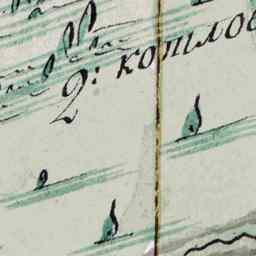 2: котлов